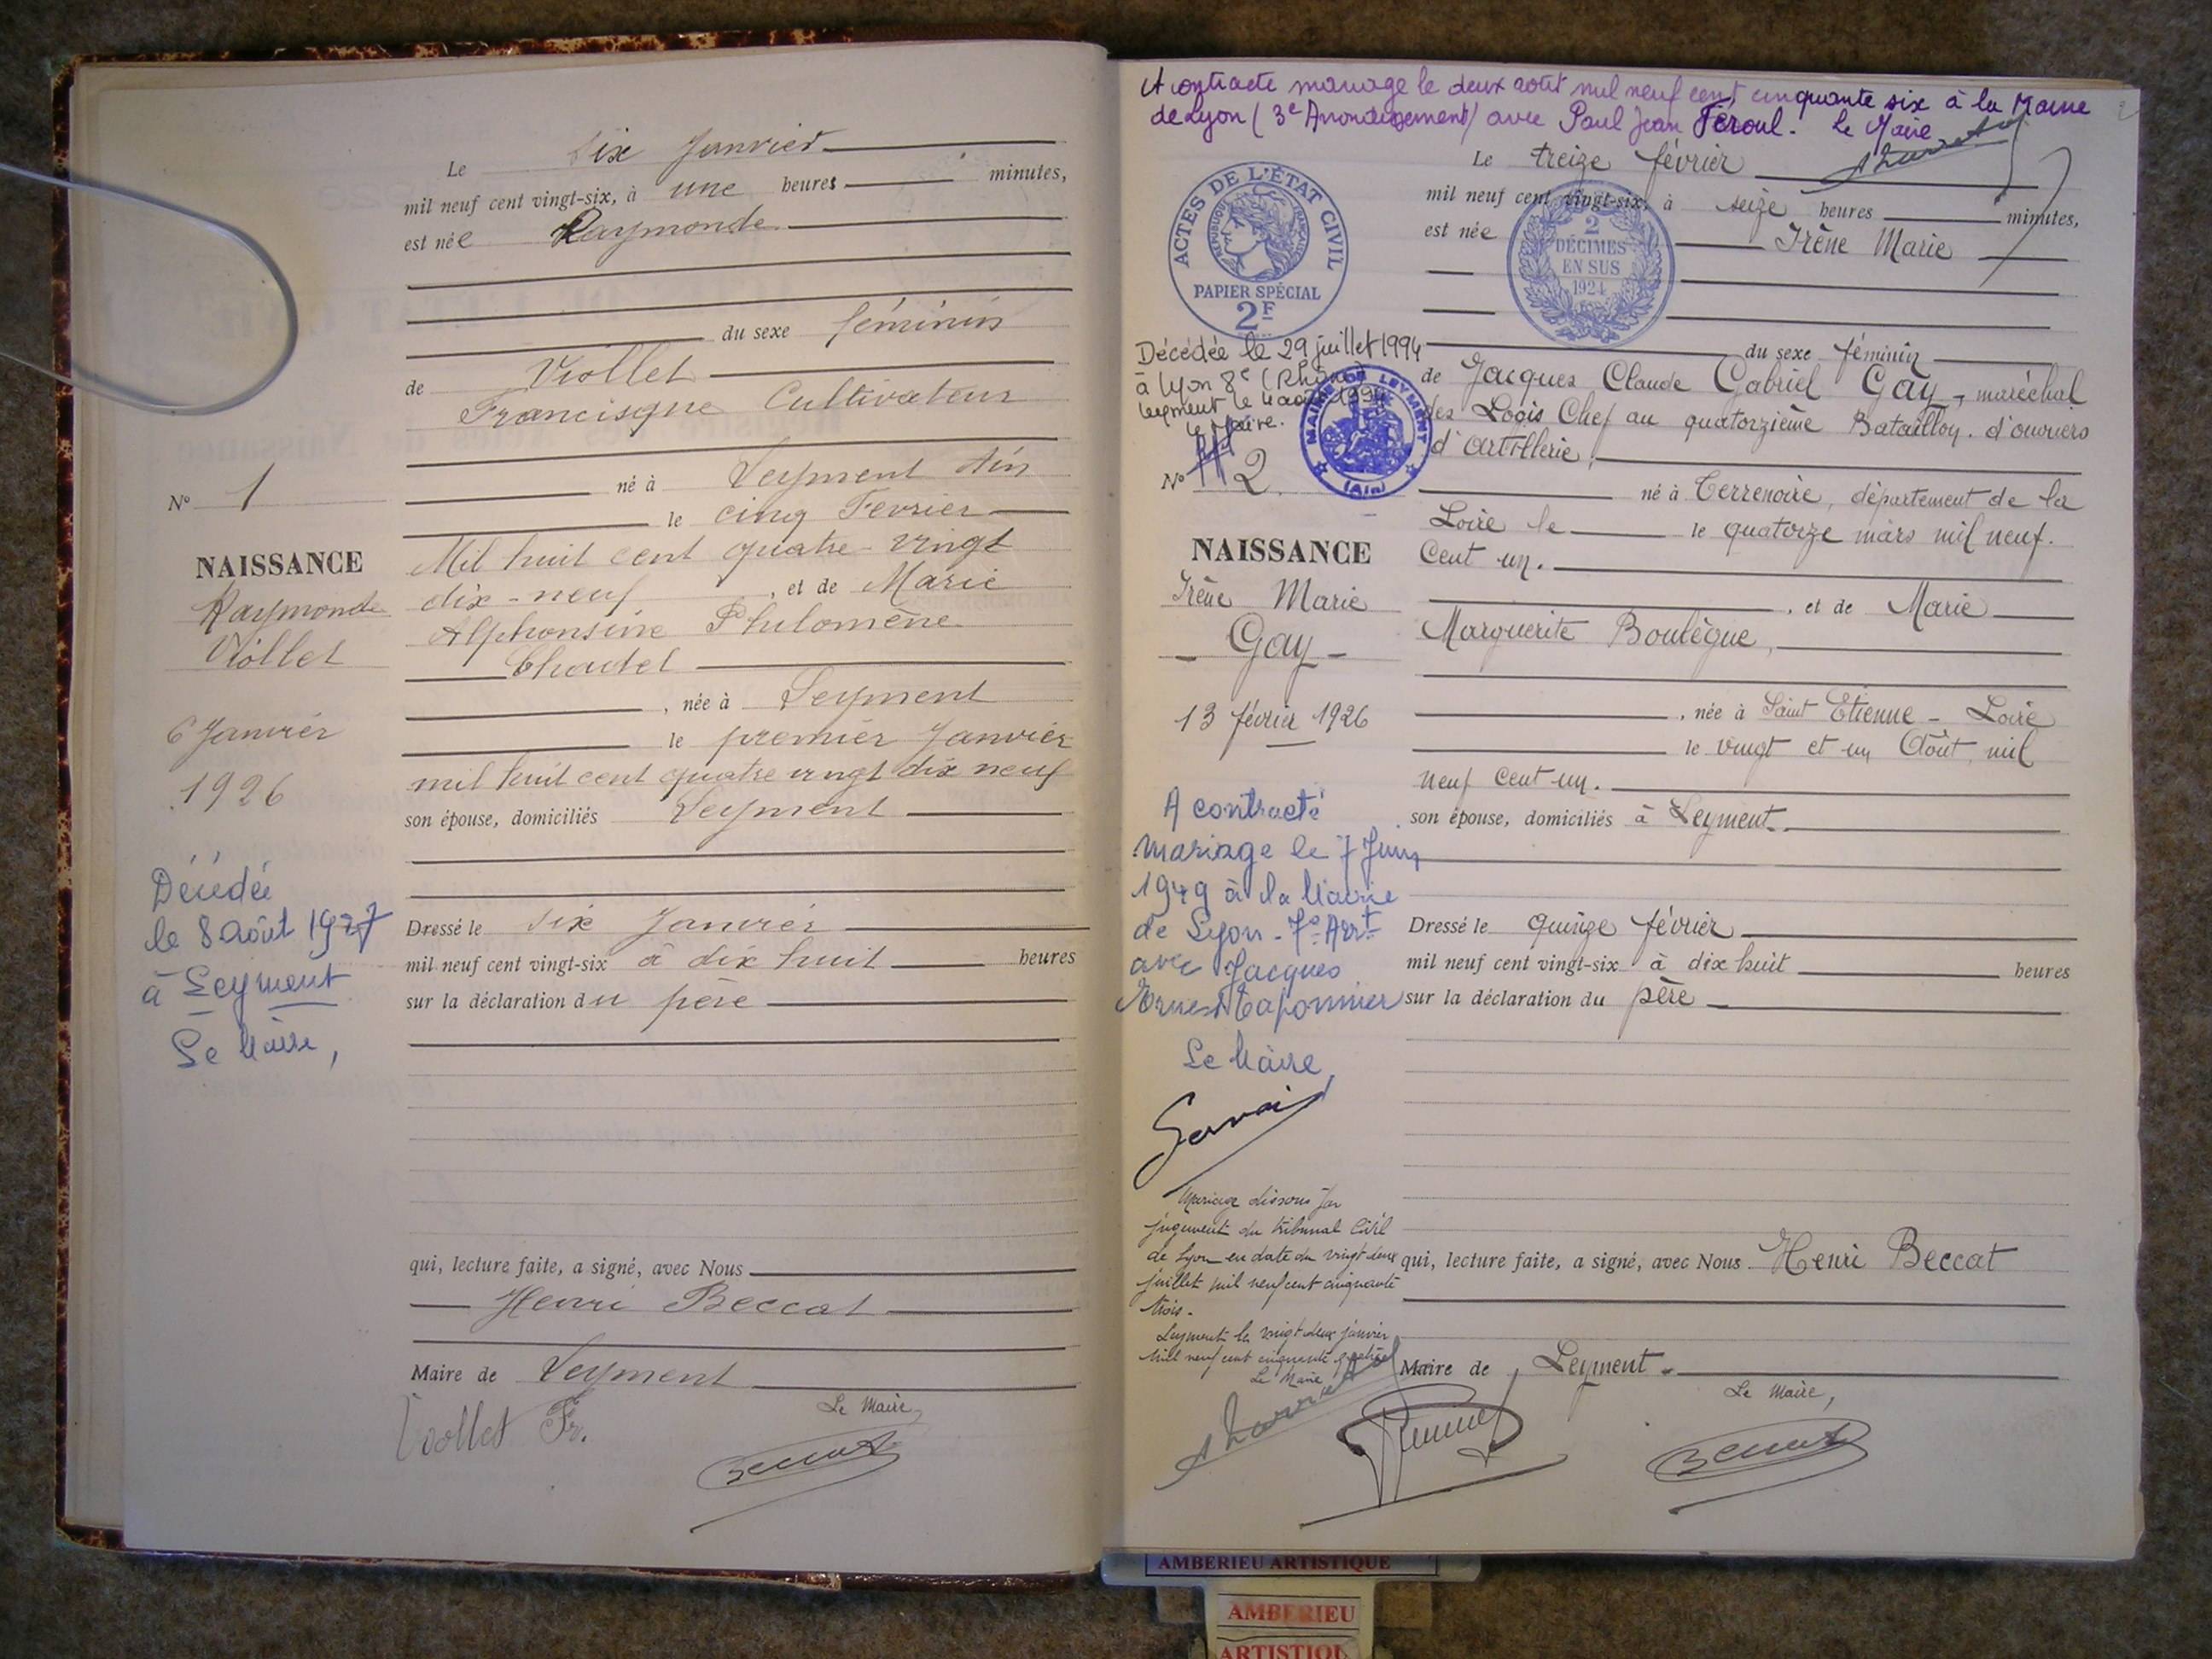 Le six Janvier
mil neuf cent vingt-six, à une heures minutes,
est née Raymonde
du sexe féminin
de Viollet
Francisque Cultivateur
né à Leyment Ain
le cinq Fevrier
Mil huit cent quatre-vingt
dix-neuf, et de Marie
Alphonsine Philomène
Chadel
, née à Leyment
le premier Janvier
mil huit cent quatre vingt dix neuf
son épouse, domiciliés Leyment
Dressé le six Janvier
mil neuf cent vingt-six à dix huit heures
sur la déclaration du père
qui, lecture faite, a signé, avec Nous
Henri Beccat
Maire de Leyment
Viollet Fr.
Le Maire,
N° 1
NAISSANCE
Raymonde
Viollet
6 Janvier
1926
Décédée
le 8 août 1927
à Leyment
Le Maire,
A contracté mariage le deux août mil neuf cent cinquante six à la Mairie
de Lyon (3e Arrondissement) avec Paul Jean Féroul. Le Maire
Le treize février
mil neuf cent vingt-six, à seize heures minutes,
est née Irène Marie
du sexe féminin
de Jacques Claude Gabriel Gay, maréchal
des Logis Chef au quatorzième Bataillon d'ouvriers
d'artillerie,
né à Terrenoire, département de la
Loire le le quatorze mars mil neuf
cent un.
, et de Marie
Marguerite Boulègue,
, née à Saint Etienne - Loire
le vingt et un Août mil
neuf cent un.
son épouse, domiciliés à Leyment.
Dressé le quinze février
mil neuf cent vingt-six à dix huit heures
sur la déclaration du père
qui, lecture faite, a signé, avec Nous Henri Beccat
Maire de Leyment
Le Maire,
ACTES DE L'ÉTAT CIVIL
RÉPUBLIQUE FRANÇAISE
PAPIER SPÉCIAL
2F
2
DÉCIMES
EN SUS
1924
Décédée le 29 juillet 1994
à Lyon 8e (Rhône)
Leyment le 4 août 1994
Le Maire.
MAIRIE DE LEYMENT
(Ain)
N° 2
NAISSANCE
Irène Marie
Gay
13 février 1926
A contracté
mariage le 7 Juin
1949 à la Mairie
de Lyon - 7e Arrt
avec Jacques
Ernest Taponnier
Le Maire,
Mariage dissous par
jugement du tribunal Civil
de Lyon en date du vingt deux
juillet mil neuf cent cinquante
trois.
Leyment le vingt deux janvier
mil neuf cent cinquante quatre
Le Maire
AMBERIEU ARTISTIQUE
AMBERIEU
ARTISTIQU